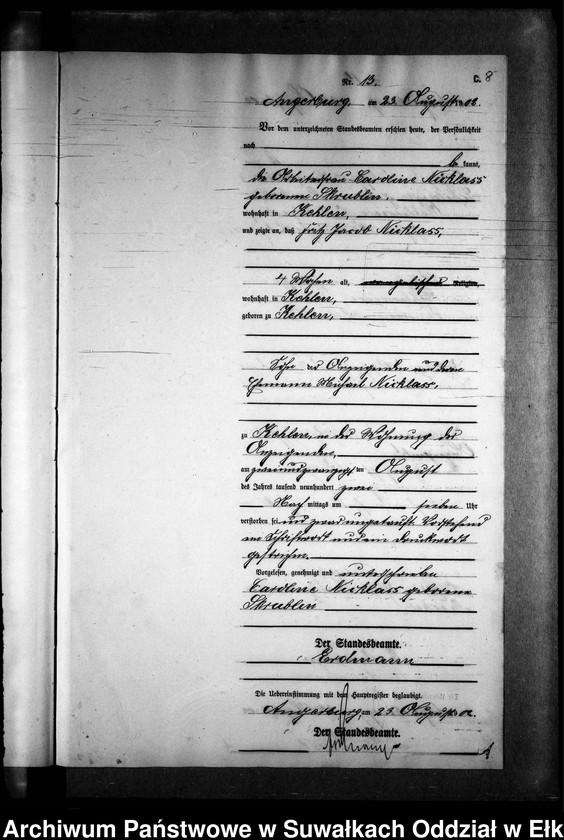 C. 8
Nr. 13.
Angerburg, am 23. August 1902.
Vor dem unterzeichneten Standesbeamten erschien heute, der Persönlichkeit
nach
be kannt,
die Arbeiterfrau Caroline Nicklass
geborene Skrublin
wohnhaft in Kehlen,
und zeigte an, daß Fritz Jacob Nicklass,
4 Wochen alt, evangelischer Religion,
wohnhaft in Kehlen,
geboren zu Kehlen,
Sohn der Anzeigenden und deren
Ehemann Michael Nicklass,
zu Kehlen, in der Wohnung der
Anzeigenden,
am zweiundzwanzigsten August
des Jahres tausend neunhundert zwei
Nach mittags um sieben Uhr
verstorben sei und zwar ungetauft. Vorstehend
ein Schriftwort und ein Druckwort
gestrichen.
Vorgelesen, genehmigt und unterschrieben
Caroline Nicklass geborene
Skrublin
Der Standesbeamte.
Erdmann
Die Uebereinstimmung mit dem Hauptregister beglaubigt.
Angerburg, am 23. August 02.
Der Standesbeamte.
Archiwum Państwowe w Suwałkach Oddział w Ełk